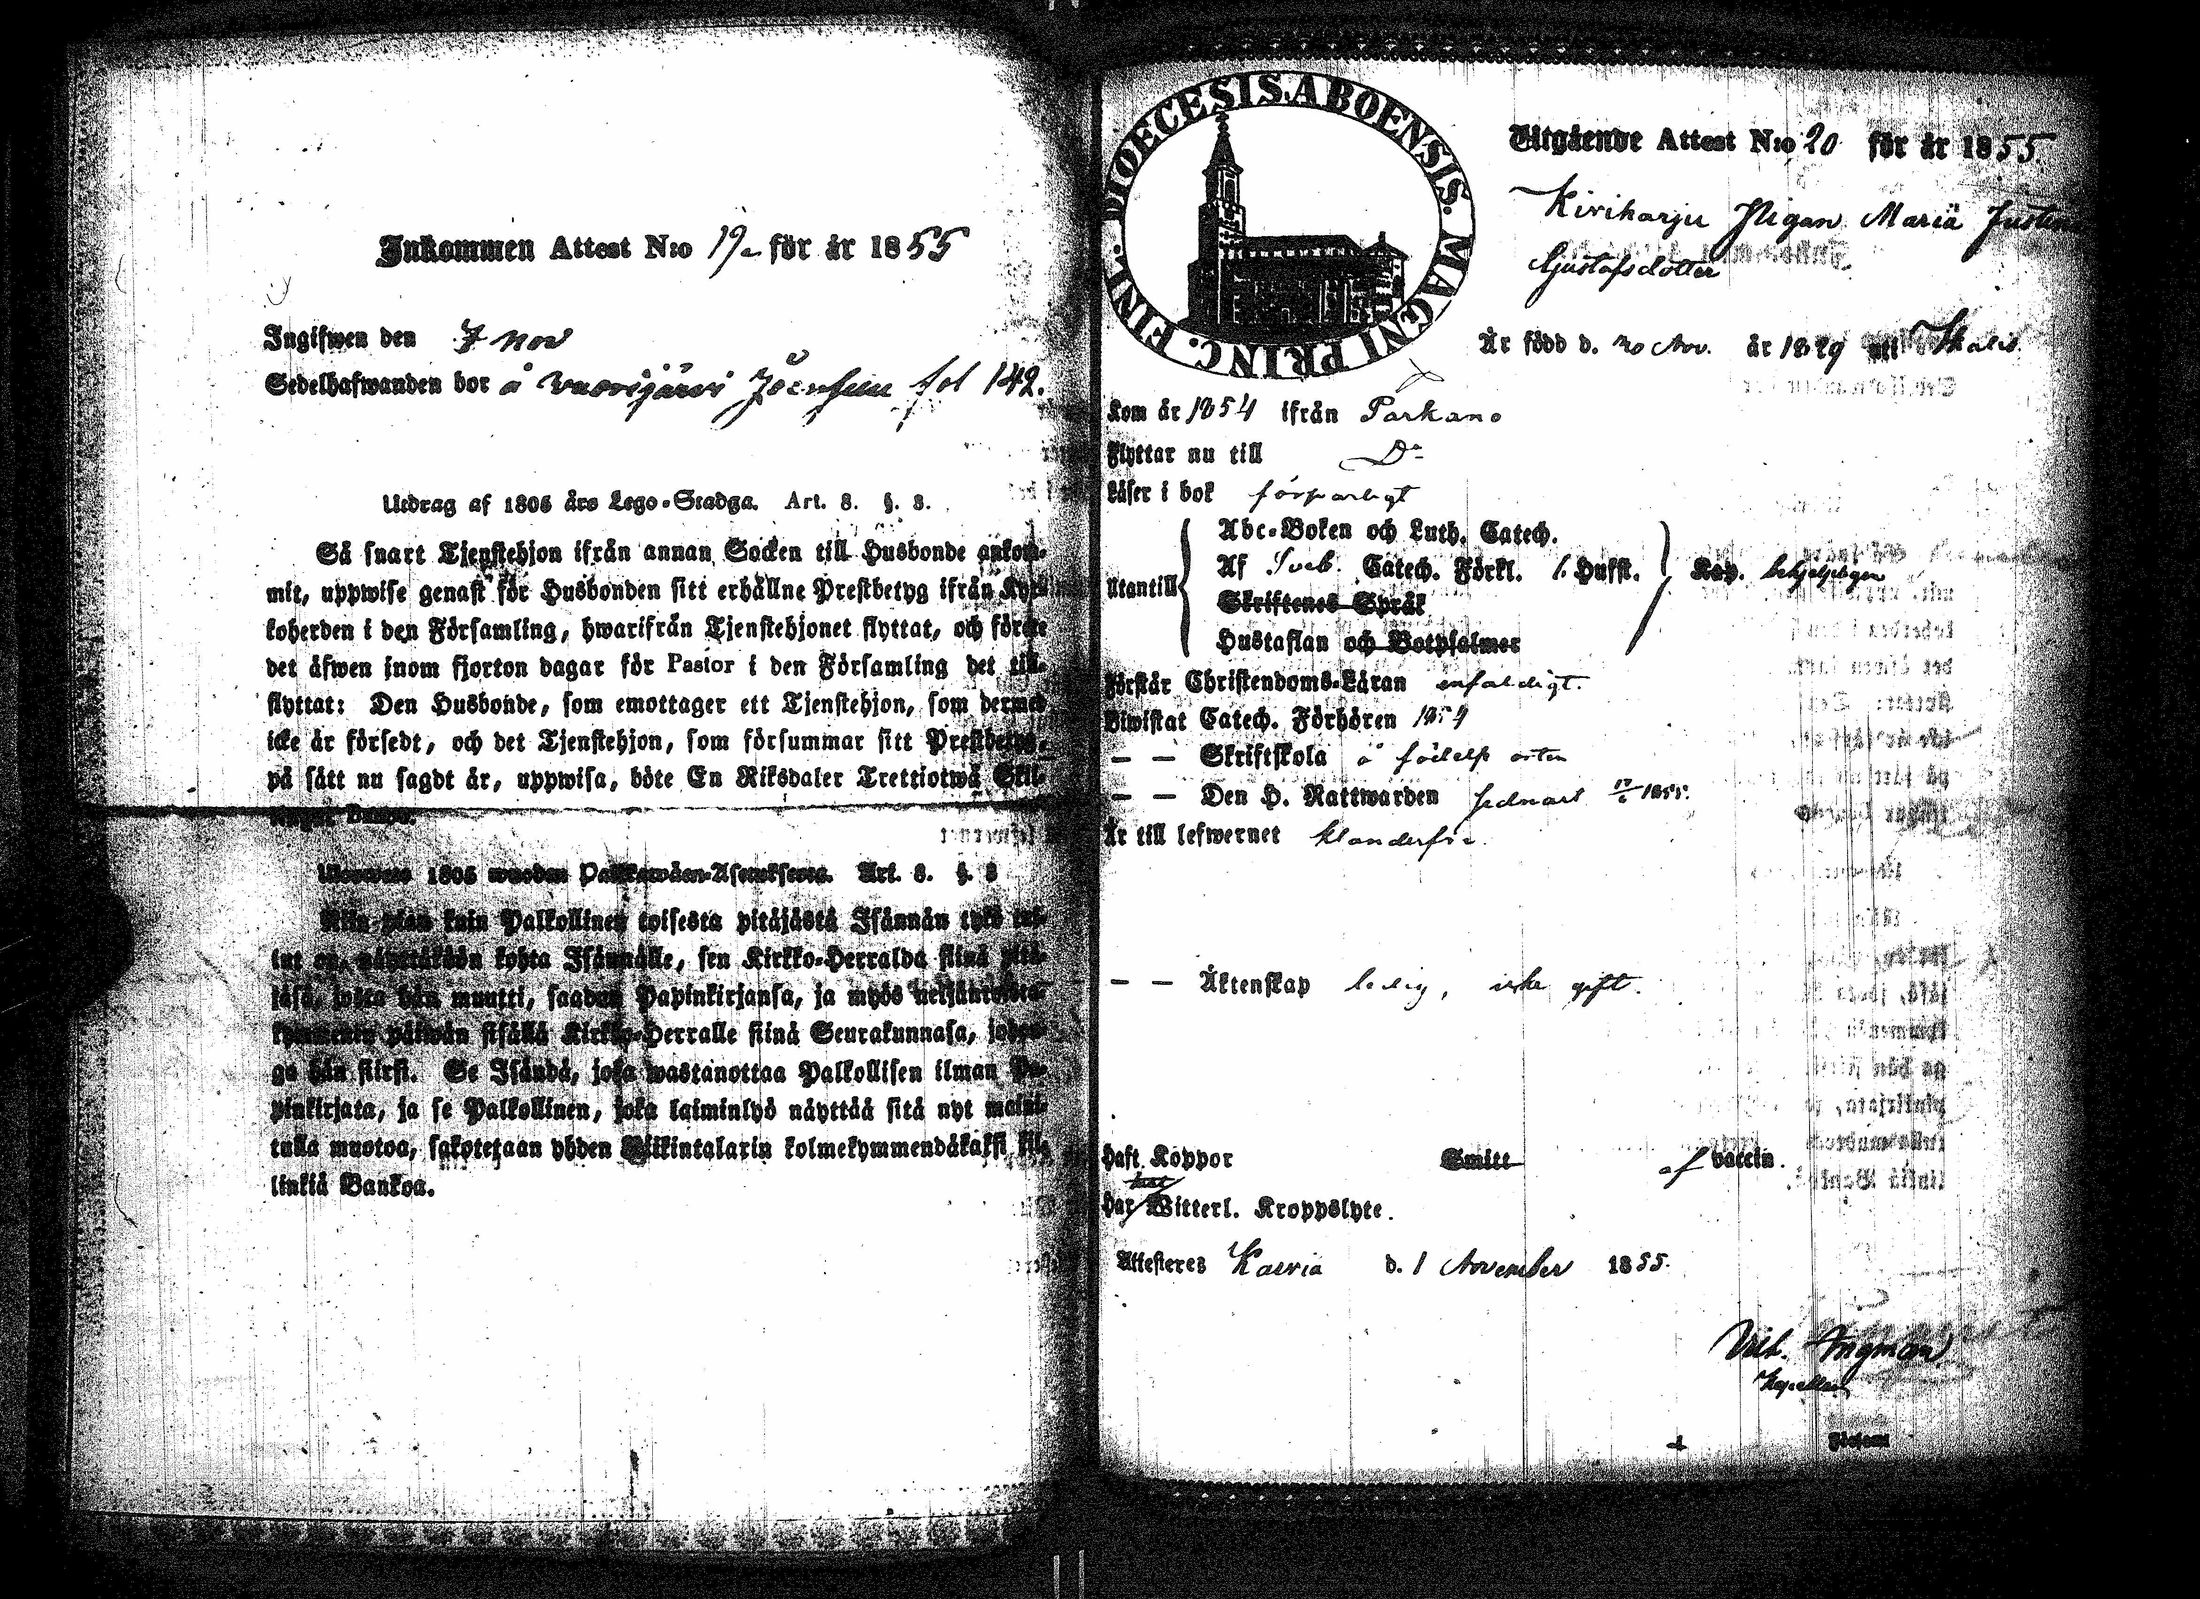 Inkommen Attest N:o 19 för år 1855
Ingifwen den 7 Nov
Sedelhafwanden bor å Vuorijärvi fol 142.
Utdrag af 1805 års Lego-Stadga. Art. 8. §. 3.
Så snart Tjenstehjon ifrån annan Socken till Husbonde ankom-
mit, uppwise genast för Husbonden sitt erhållne Prestbetyg ifrån Kyr-
koherden i den Församling, hwarifrån Tjenstehjonet flyttat, och förete
det äfwen inom fjorton dagar för Pastor i den Församling det till-
flyttat: Den Husbonde, som emottager ett Tjenstehjon, som dermed
icke är försedt, och det Tjenstehjon, som försummar sitt Prestbetyg,
på sätt nu sagdt är, uppwisa, böte En Riksdaler Trettiotwå Skil-
lingar Banco.
1805 wuoden Palkkawäen-Asetuksesta. Art. 8. §. 3
Niin pian kuin Palkollinen toisesta pitäjästä Isännän tykö tul-
lut on, näyttäköön kohta Isännälle, sen Kirkko-Herralda siinä pitä-
jäsä, josta hän muutti, saadun Papinkirjansa, ja myös neljäntoista-
kymmenen päiwän sisällä Kirkko-Herralle siinä Seurakunnasa, johon-
ga hän siirsi. Se Isändä, joka wastanottaa Palkollisen ilman Pa-
pinkirjata, ja se Palkollinen, joka laiminlyö näyttää sitä nyt maini-
tulla muotoa, sakotetaan yhden Riikintalarin kolmekymmendäkaksi kil-
linkiä Bankoa.
DIOECESIS. ABOENSIS. MAGNI PRINC. FINL.
Utgående Attest N:o 20 för år 1855
Kiviharju Pigan Maria Justina
Gustafsdotter
Är född d. 20 Nov. år 1829 uti Ikalis
Kom år 1854 ifrån Parkano
Flyttar nu till Do
Läser i bok försvarligt
Abc-Boken och Luth. Catech.
Utantill Af Sveb. Catech. Förkl. Hufst. Kap. behjelpligen
Skriftenes Språk
Hustaflan och Botpsalmer
Förstår Christendoms-Läran enfaldigt.
Biwistat Catech. Förhören 1854
— — Skriftskola å födelse orten
— — Den H. Nattwarden sednast 17/6 1855.
Är till lefwernet klanderfri.
— — Äktenskap ledig, icke gift.
Haft Koppor Smitt af vaccin.
Har Witterl. Kroppslyte.
Attesteres Karvia d. 1 November 1855.
Vilh. Ingman
Kapellan